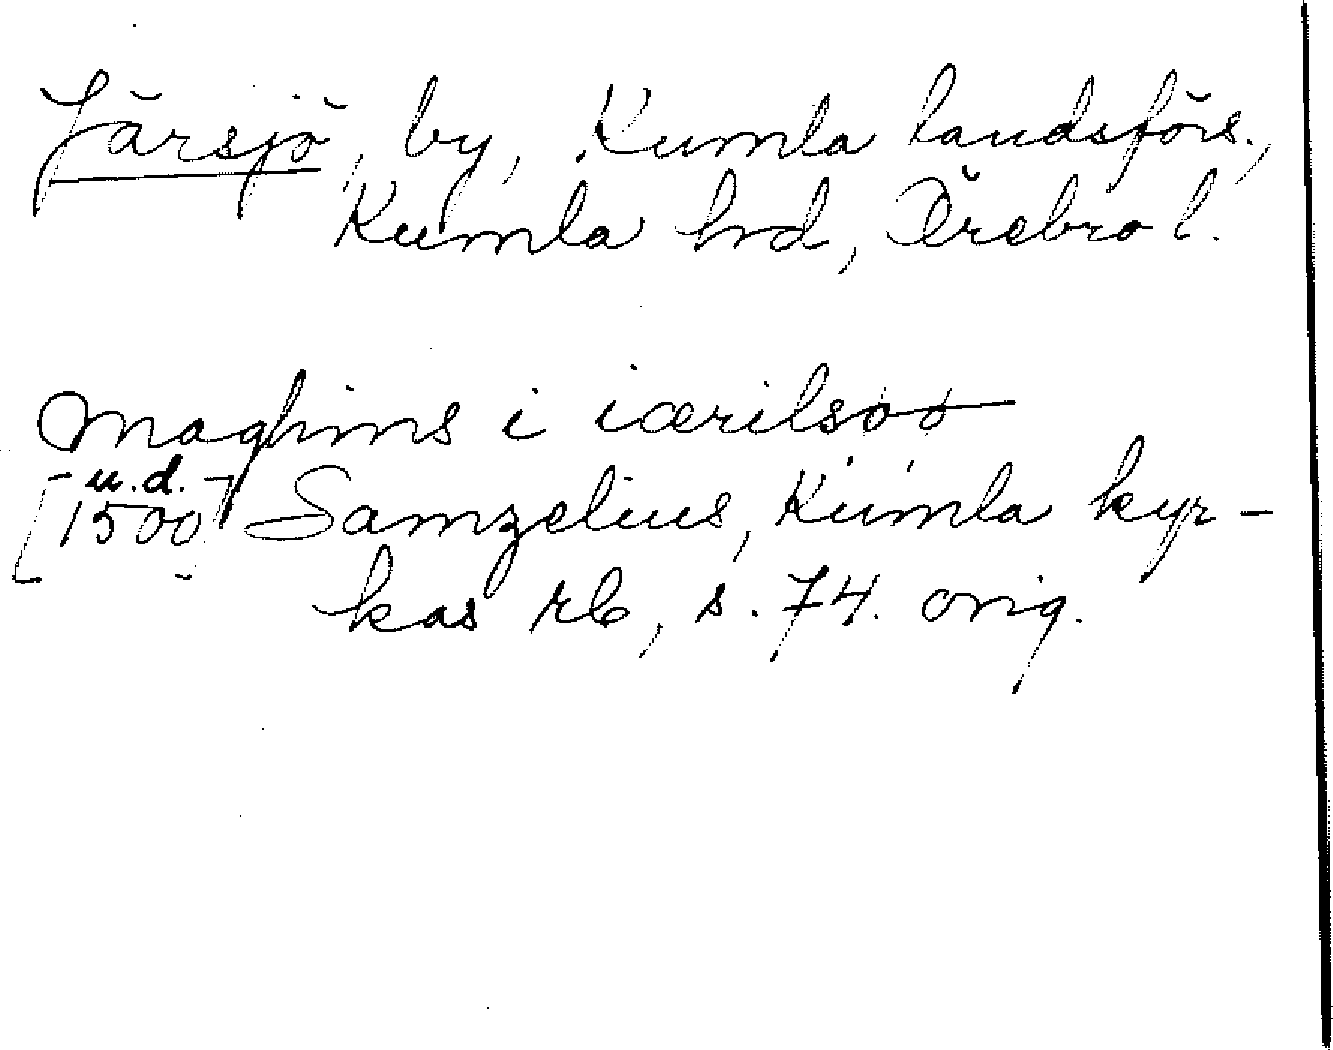 Järsjö, by, Kumla landsförs.,
Kumla hd, Örebro l.
Maghins i iærilsøø
[u.d. 1500] Samzelius, Kumla kyr-
kas rb, s. 74. orig.